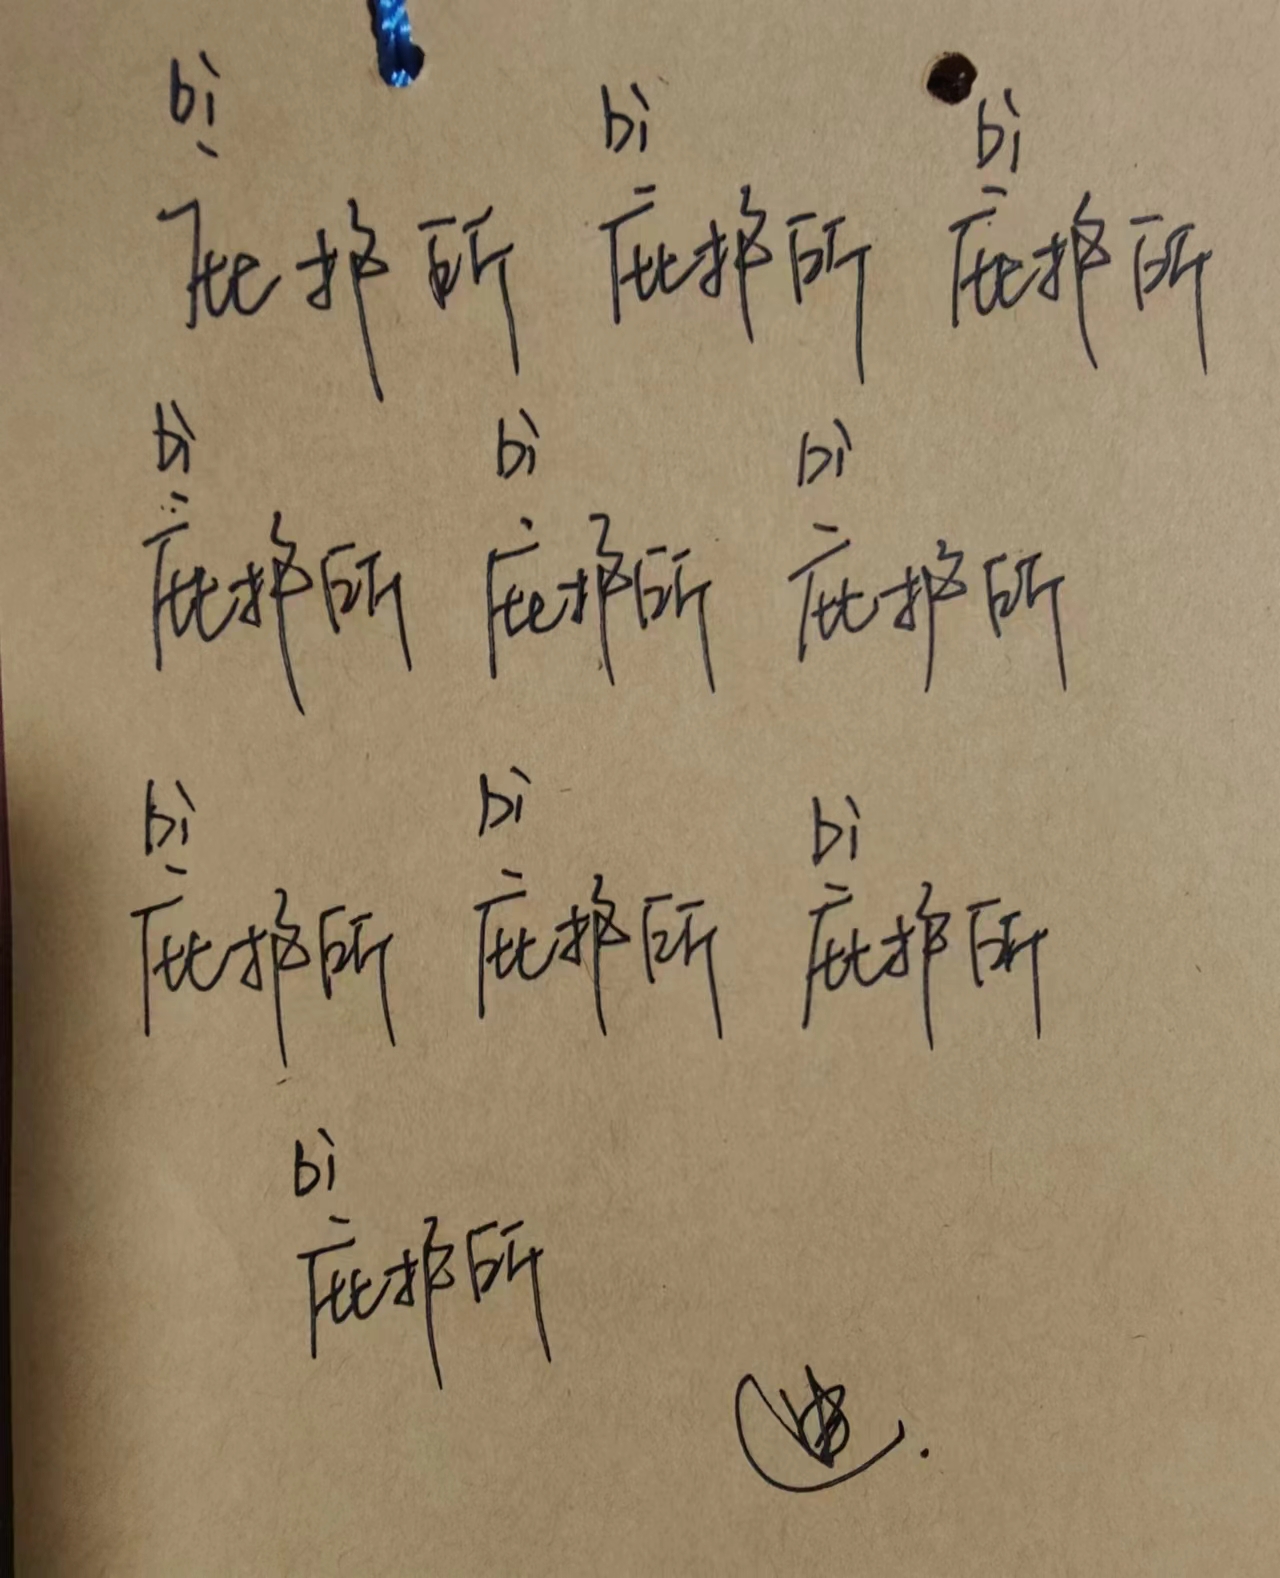 bì bì bì
庇护所 庇护所 庇护所
bì bì bì
庇护所 庇护所 庇护所
bì bì bì
庇护所 庇护所 庇护所
bì
庇护所